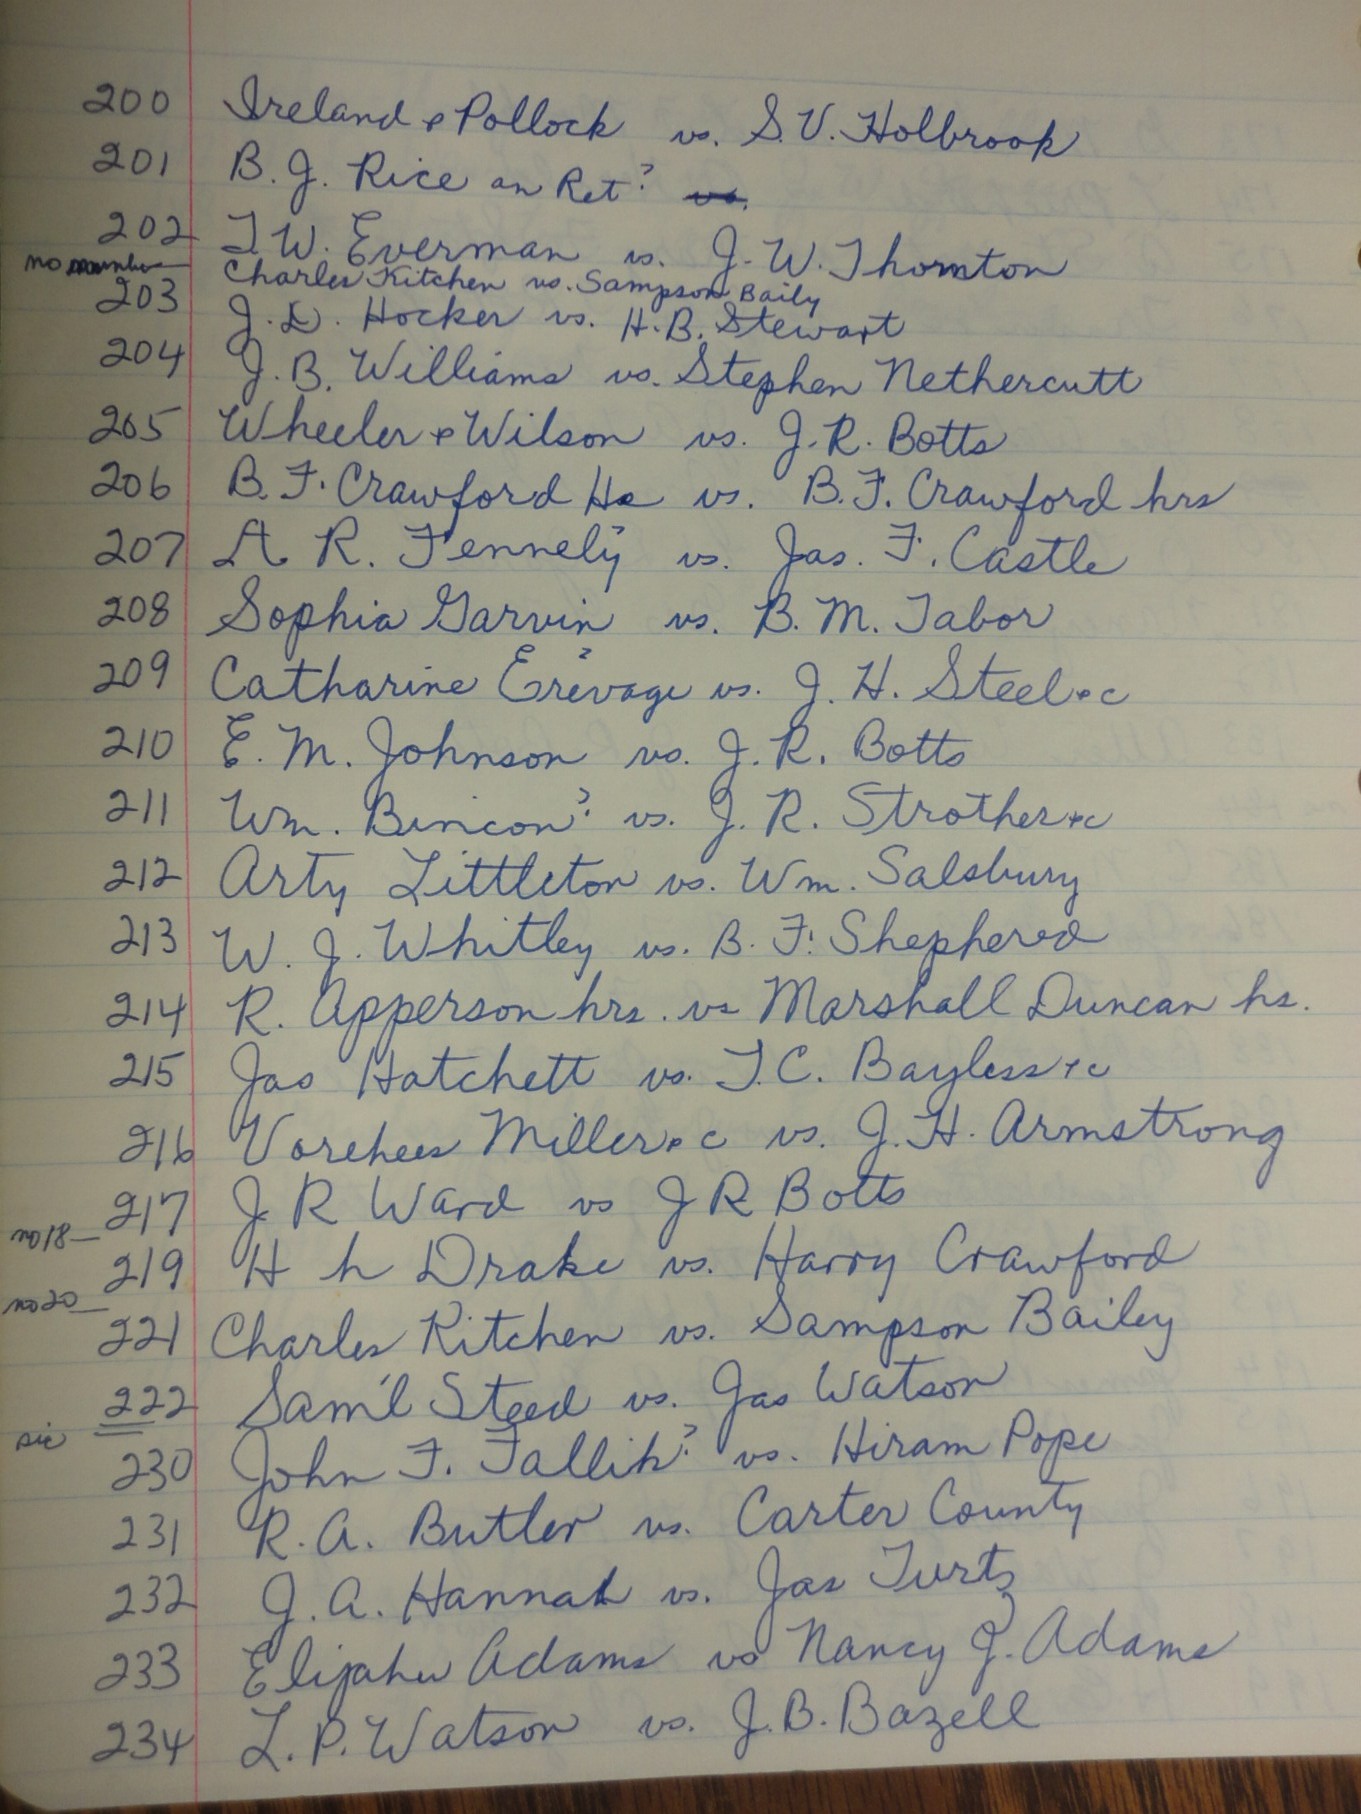 200 Ireland & Pollock vs. S.V. Holbrook
201 B.J. Rice on Ret? vs.
202 T.W. Everman vs. J.W. Thornton
no number Charles Kitchen vs. Sampson Baily
203 J.D. Hocker vs. H.B. Stewart
204 J.B. Williams vs. Stephen Nethercutt
205 Wheeler & Wilson vs. J.R. Botts
206 B.F. Crawford Hs vs. B.F. Crawford hrs
207 A R. Fennely? vs. Jas. F. Castle
208 Sophia Garvin vs. B.M. Tabor
209 Catharine Erevage? vs. J.H. Steel &c
210 E.M. Johnson vs. J.R. Botts
211 Wm. Bincon? vs. J.R. Strother &c
212 Arty Littleton vs. Wm. Salsbury
213 W.J. Whitley vs. B.F. Shepherd
214 R. Apperson hrs. vs Marshall Duncan hs.
215 Jas Hatchett vs. T.C. Bayless &c
216 Vorehees Miller &c vs. J.H. Armstrong
217 J R Ward vs J R Botts
no 18
219 H h Drake vs. Harry Crawford
no 20
221 Charles Kitchen vs. Sampson Bailey
222 Sam'l Steed vs. Jas Watson
sic
230 John F. Fallih? vs. Hiram Pope
231 R.A. Butler vs. Carter County
232 J.A. Hannah vs. Jas Turtz
233 Elijahu Adams vs Nancy J. Adams
234 L.P. Watson vs. J.B. Bazell